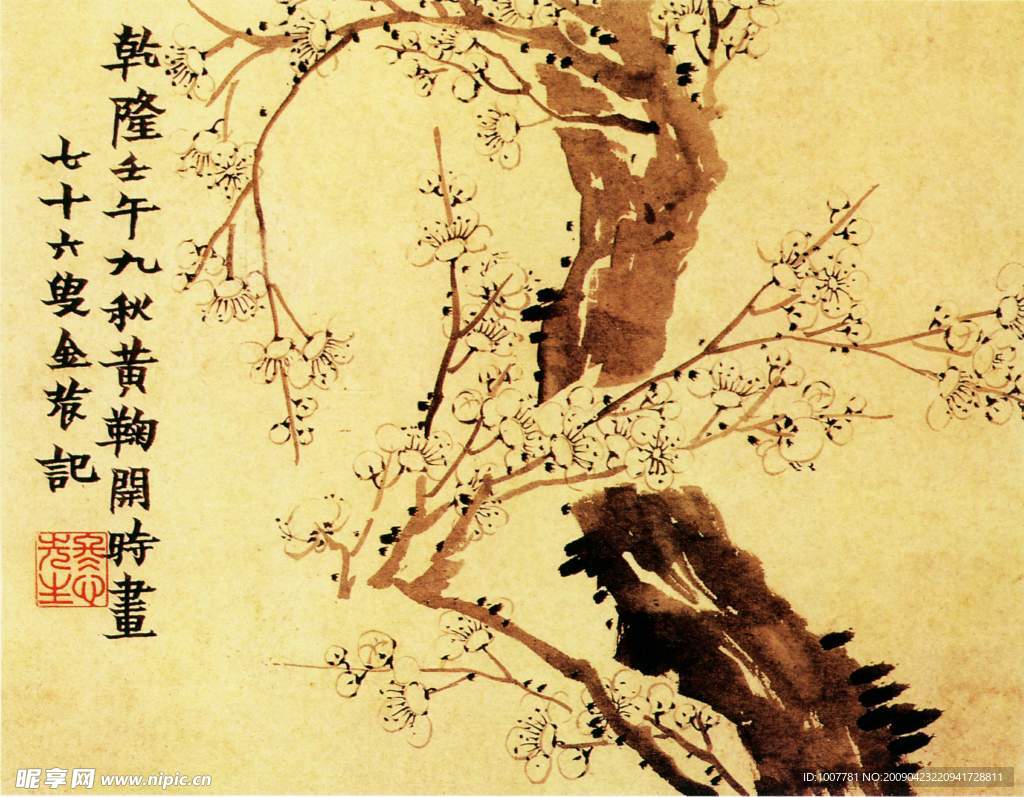 乾隆壬午九秋黄鞠開時畫
七十六叟金農記
昵享网 www.nipic.cn
ID:1007781 NO:20090423220941728811